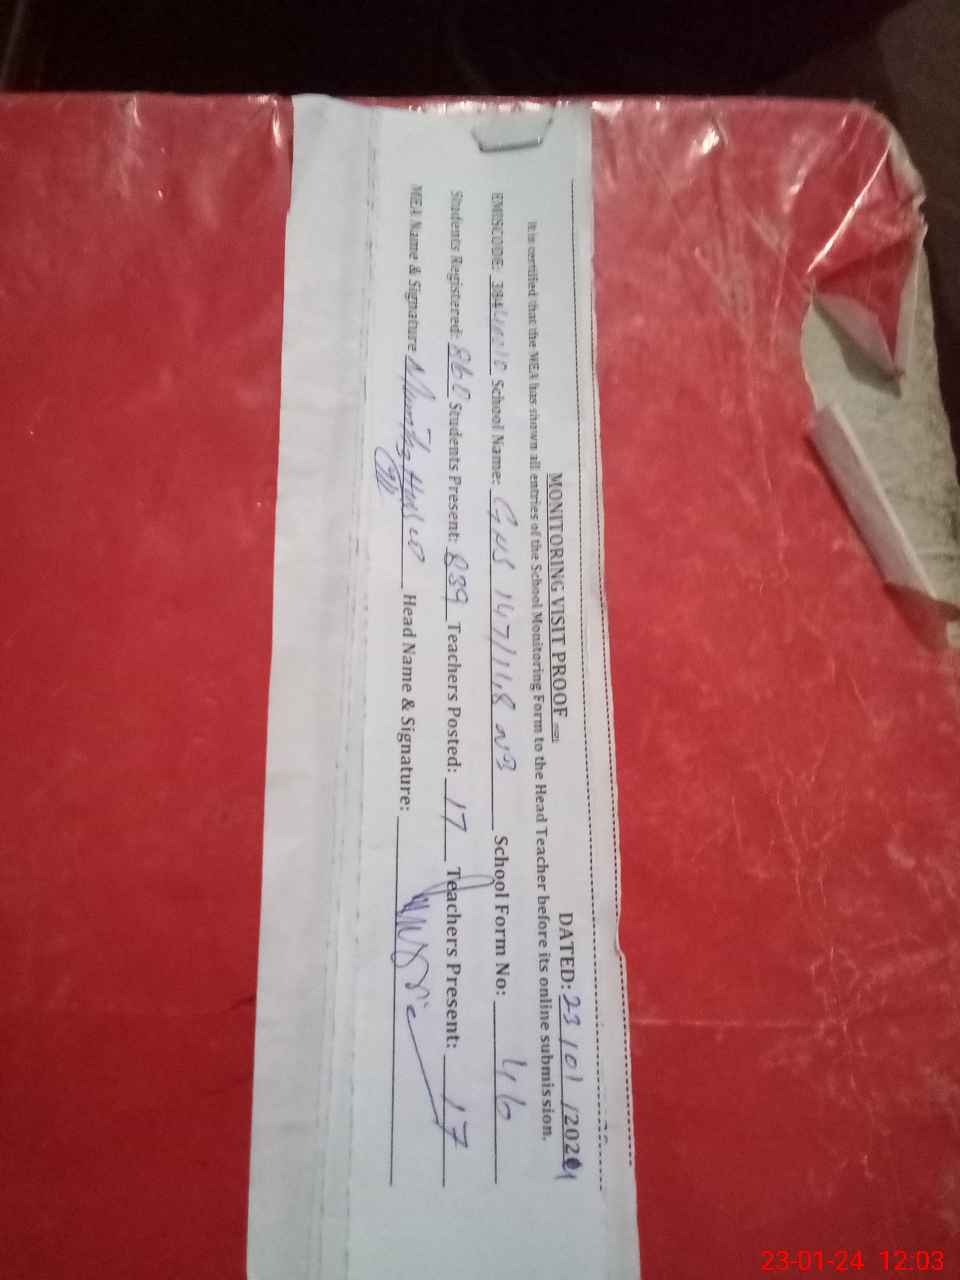 MONITORING VISIT PROOF DATED: 23/01/2024
It is certified that the MEA has shown all entries of the School Monitoring Form to the Head Teacher before its online submission.
EMISCODE: School Name: GHS 147/11,8 School Form No: 46
Students Registered: 860 Students Present: 839 Teachers Posted: 17 Teachers Present: 17
MEA Name & Signature Head Name & Signature:
23-01-24 12:03